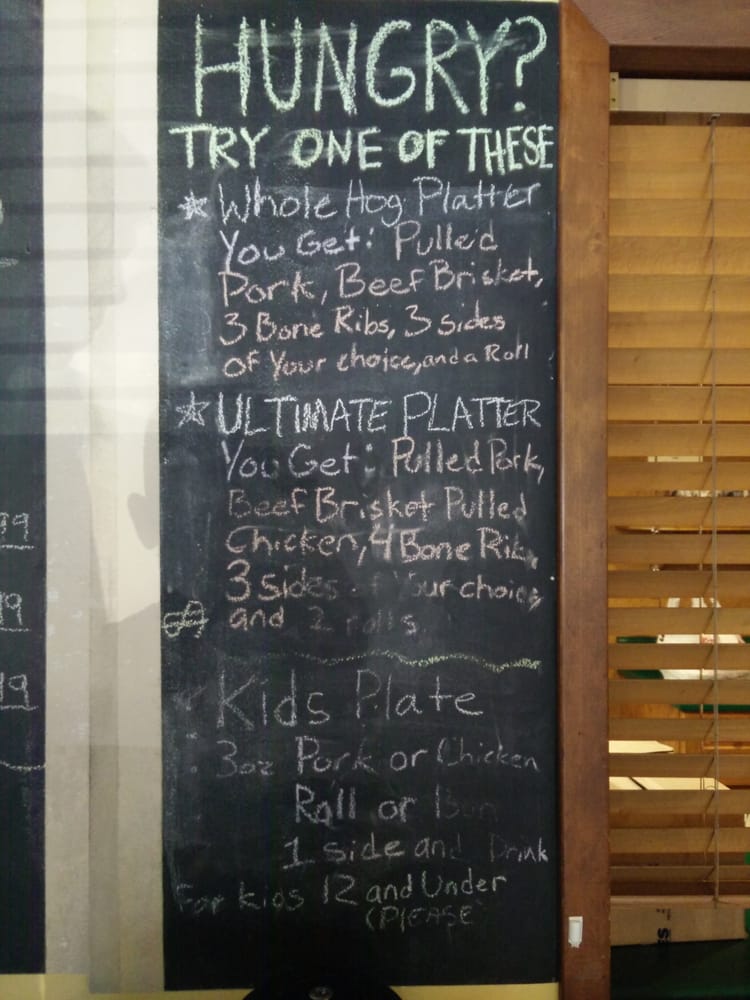 HUNGRY?
TRY ONE OF THESE
Whole Hog Platter
You Get: Pulled
Pork, Beef Brisket,
3 Bone Ribs, 3 sides
of Your choice, and a Roll
ULTIMATE PLATTER
You Get: Pulled Pork,
Beef Brisket Pulled
Chicken, 4 Bone Ribs,
3 sides of Your choice,
and 2 rolls
Kids Plate
3oz Pork or Chicken
Roll or Bun
1 side and Drink
For kids 12 and Under
(PLEASE
99